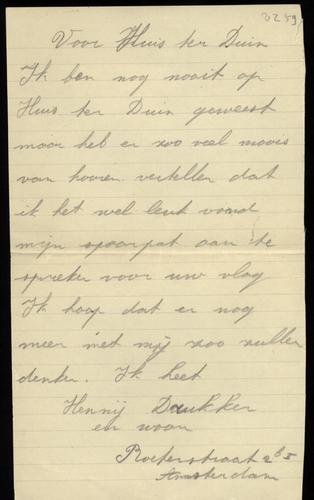 3259
Voor Huis ter Duin
Ik ben nog nooit op
Huis ter Duin geweest
maar heb er zoo veel moois
van hooren vertellen dat
ik het wel leuk vond
mijn spaarpot aan te
spreken voor uw vlag
Ik hoop dat er nog
meer net mij zoo zullen
denken. Ik heet
Hennij Drukker
en woon
Roeterstraat 2
Amsterdam